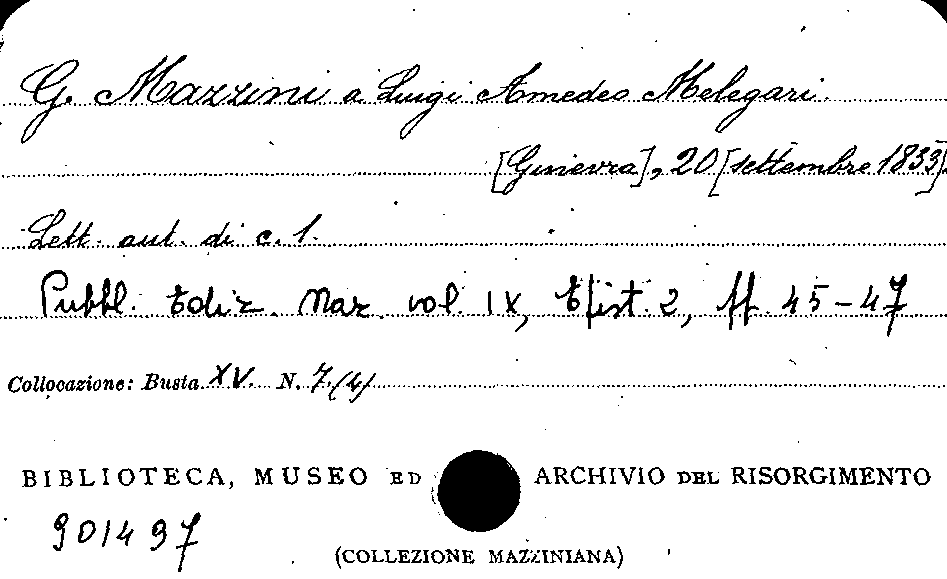 G. Mazzini a Luigi Amedeo Melegari.
[Ginevra], 20 [settembre 1833].
Lett. aut. di c. 1.
Pubbl. Ediz. Naz. vol. IX, Epist. 2, pp. 45-47
Collocazione: Busta XV. N. 7(4)
BIBLIOTECA, MUSEO ED ARCHIVIO DEL RISORGIMENTO
901497
(COLLEZIONE MAZZINIANA)